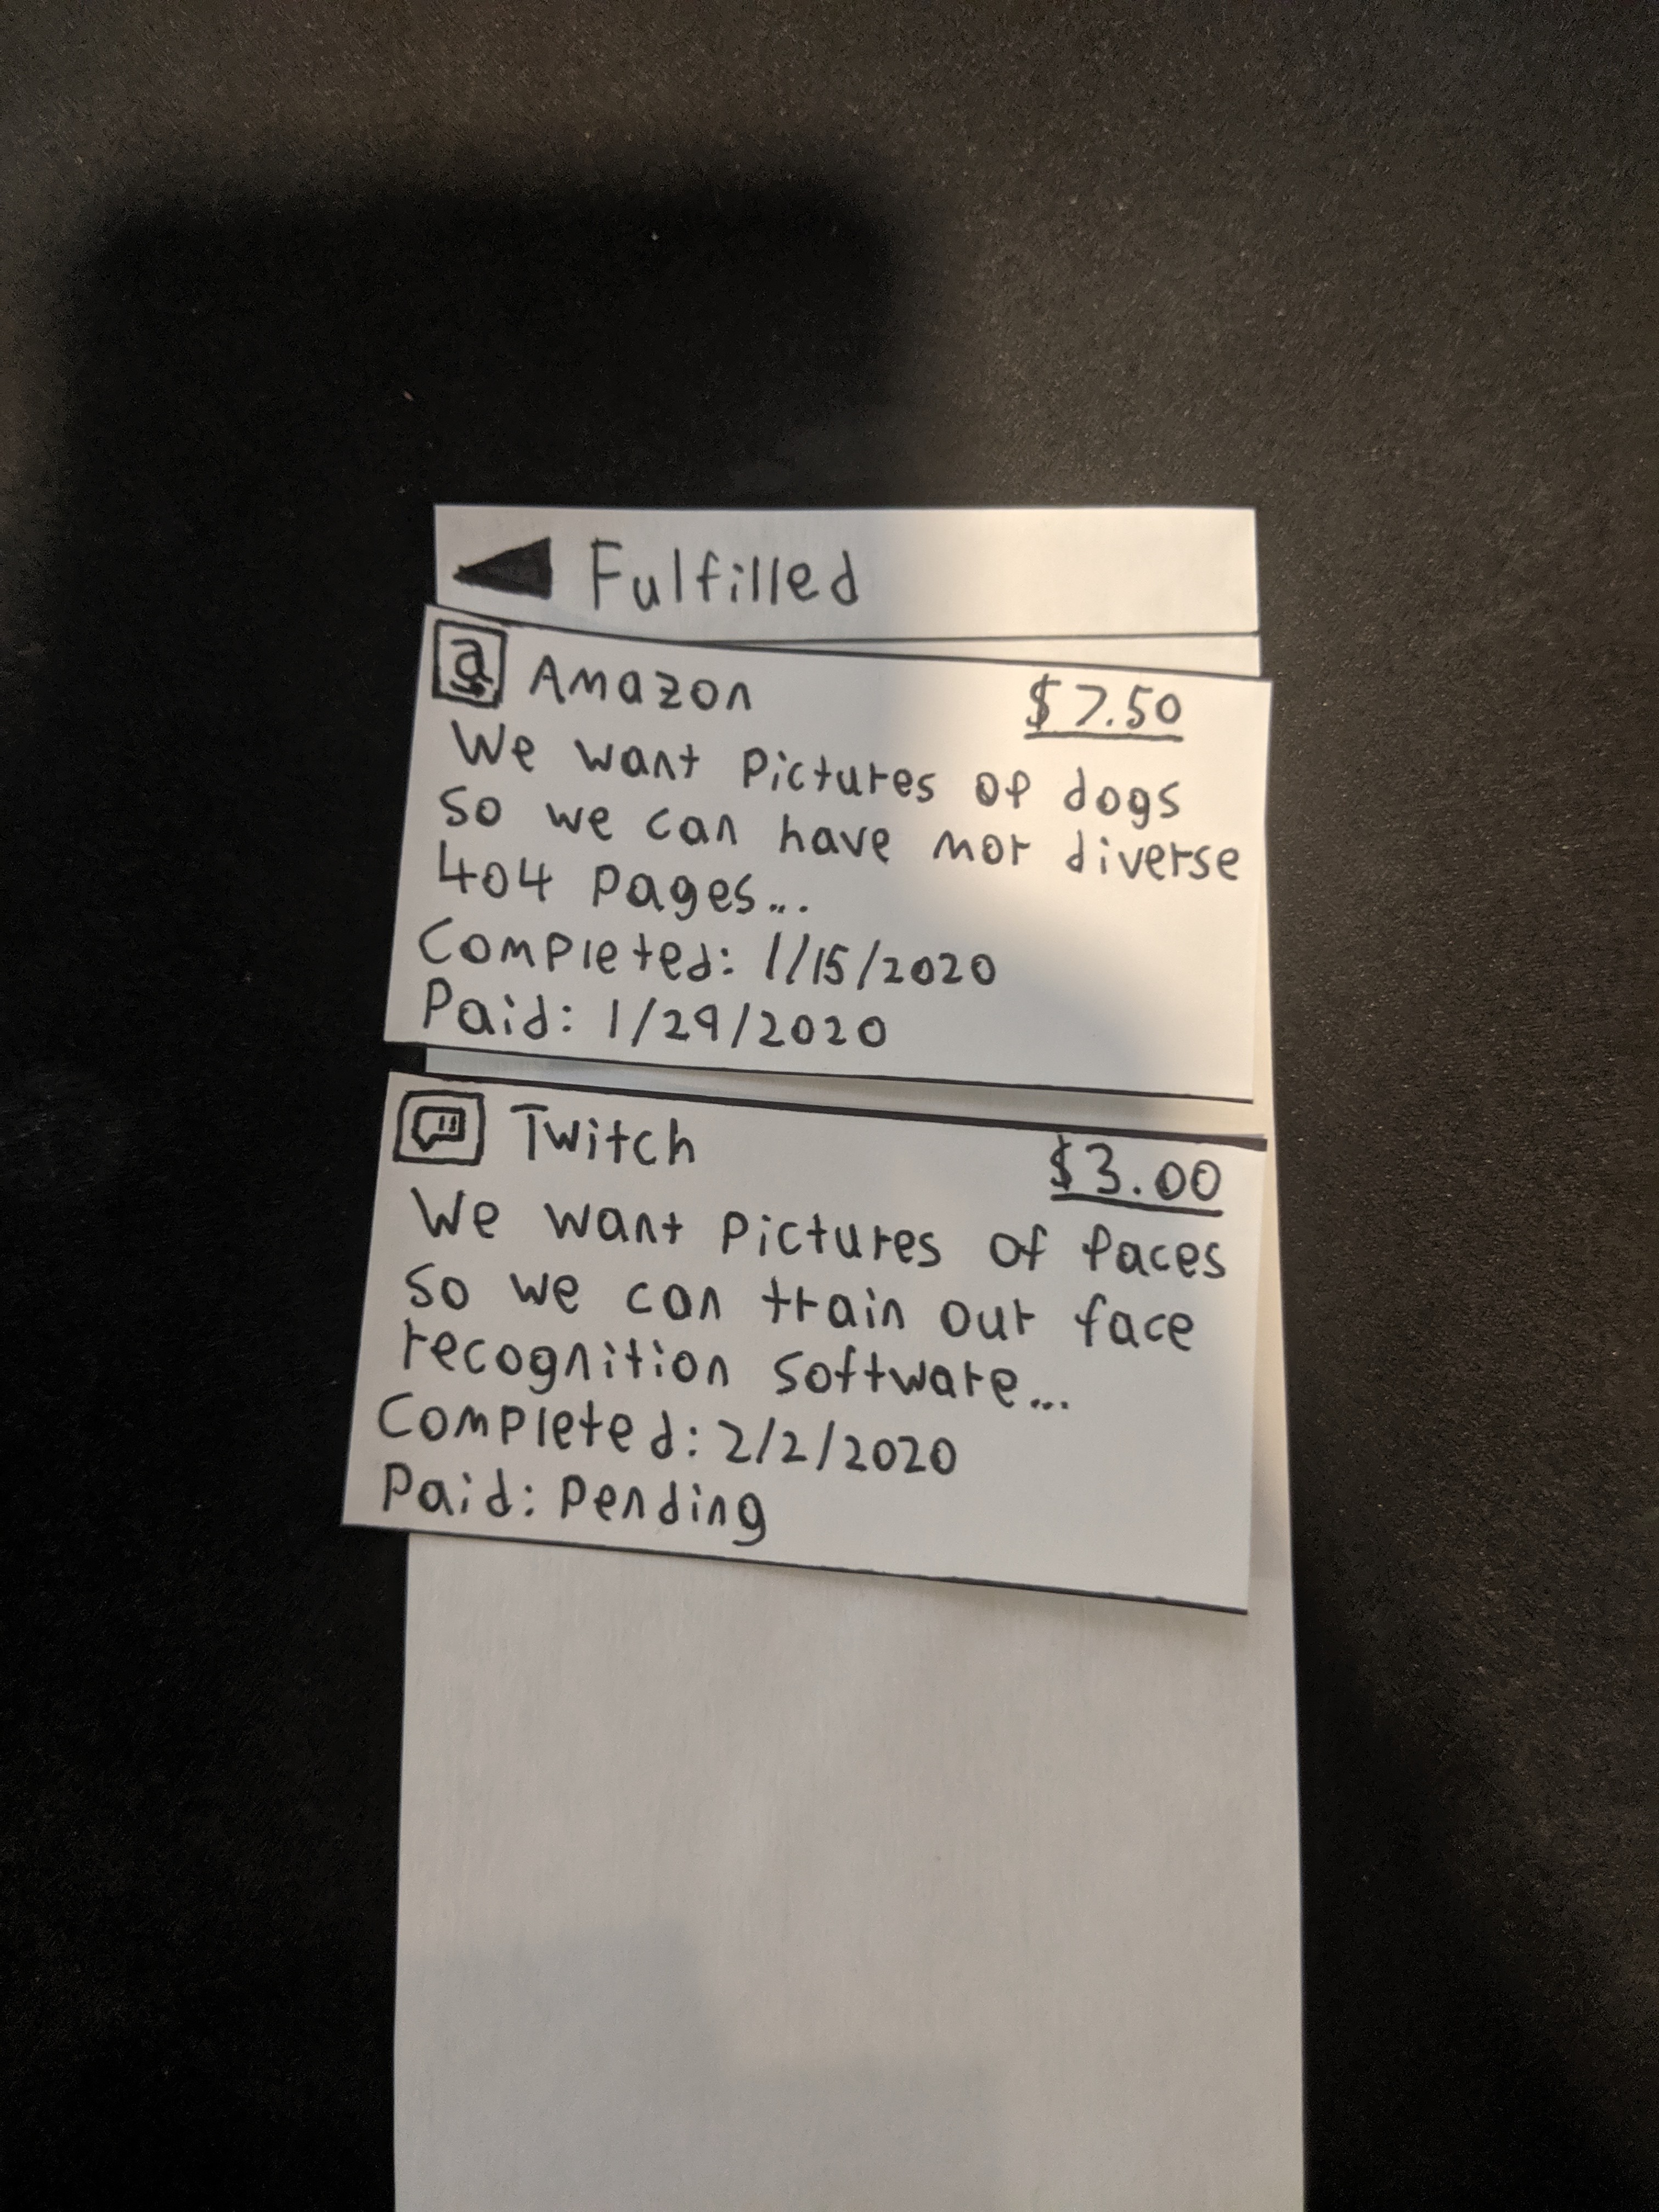 Fulfilled
a Amazon $7.50
We want pictures of dogs
so we can have mor diverse
404 pages...
Completed: 1/15/2020
Paid: 1/29/2020
Twitch $3.00
We want pictures of faces
so we can train our face
recognition software...
Completed: 2/2/2020
Paid: Pending